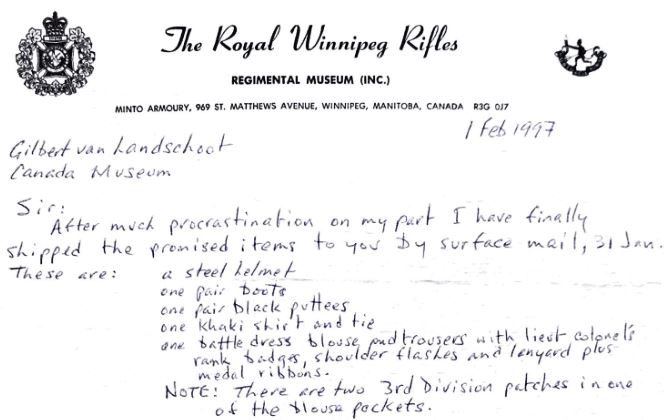 The Royal Winnipeg Rifles
REGIMENTAL MUSEUM (INC.)
MINTO ARMOURY, 969 ST. MATTHEWS AVENUE, WINNIPEG, MANITOBA, CANADA R3G 0J7
1 Feb 1997
Gilbert van Landschoot
Canada Museum
Sir:
After much procrastination on my part I have finally
shipped the promised items to you by surface mail, 31 Jan.
These are: a steel helmet
one pair boots
one pair black puttees
one khaki shirt and tie
one battle dress blouse and trousers with lieut colonel's
rank badges, shoulder flashes and lanyard plus
medal ribbons.
NOTE: There are two 3rd Division patches in one
of the blouse pockets.